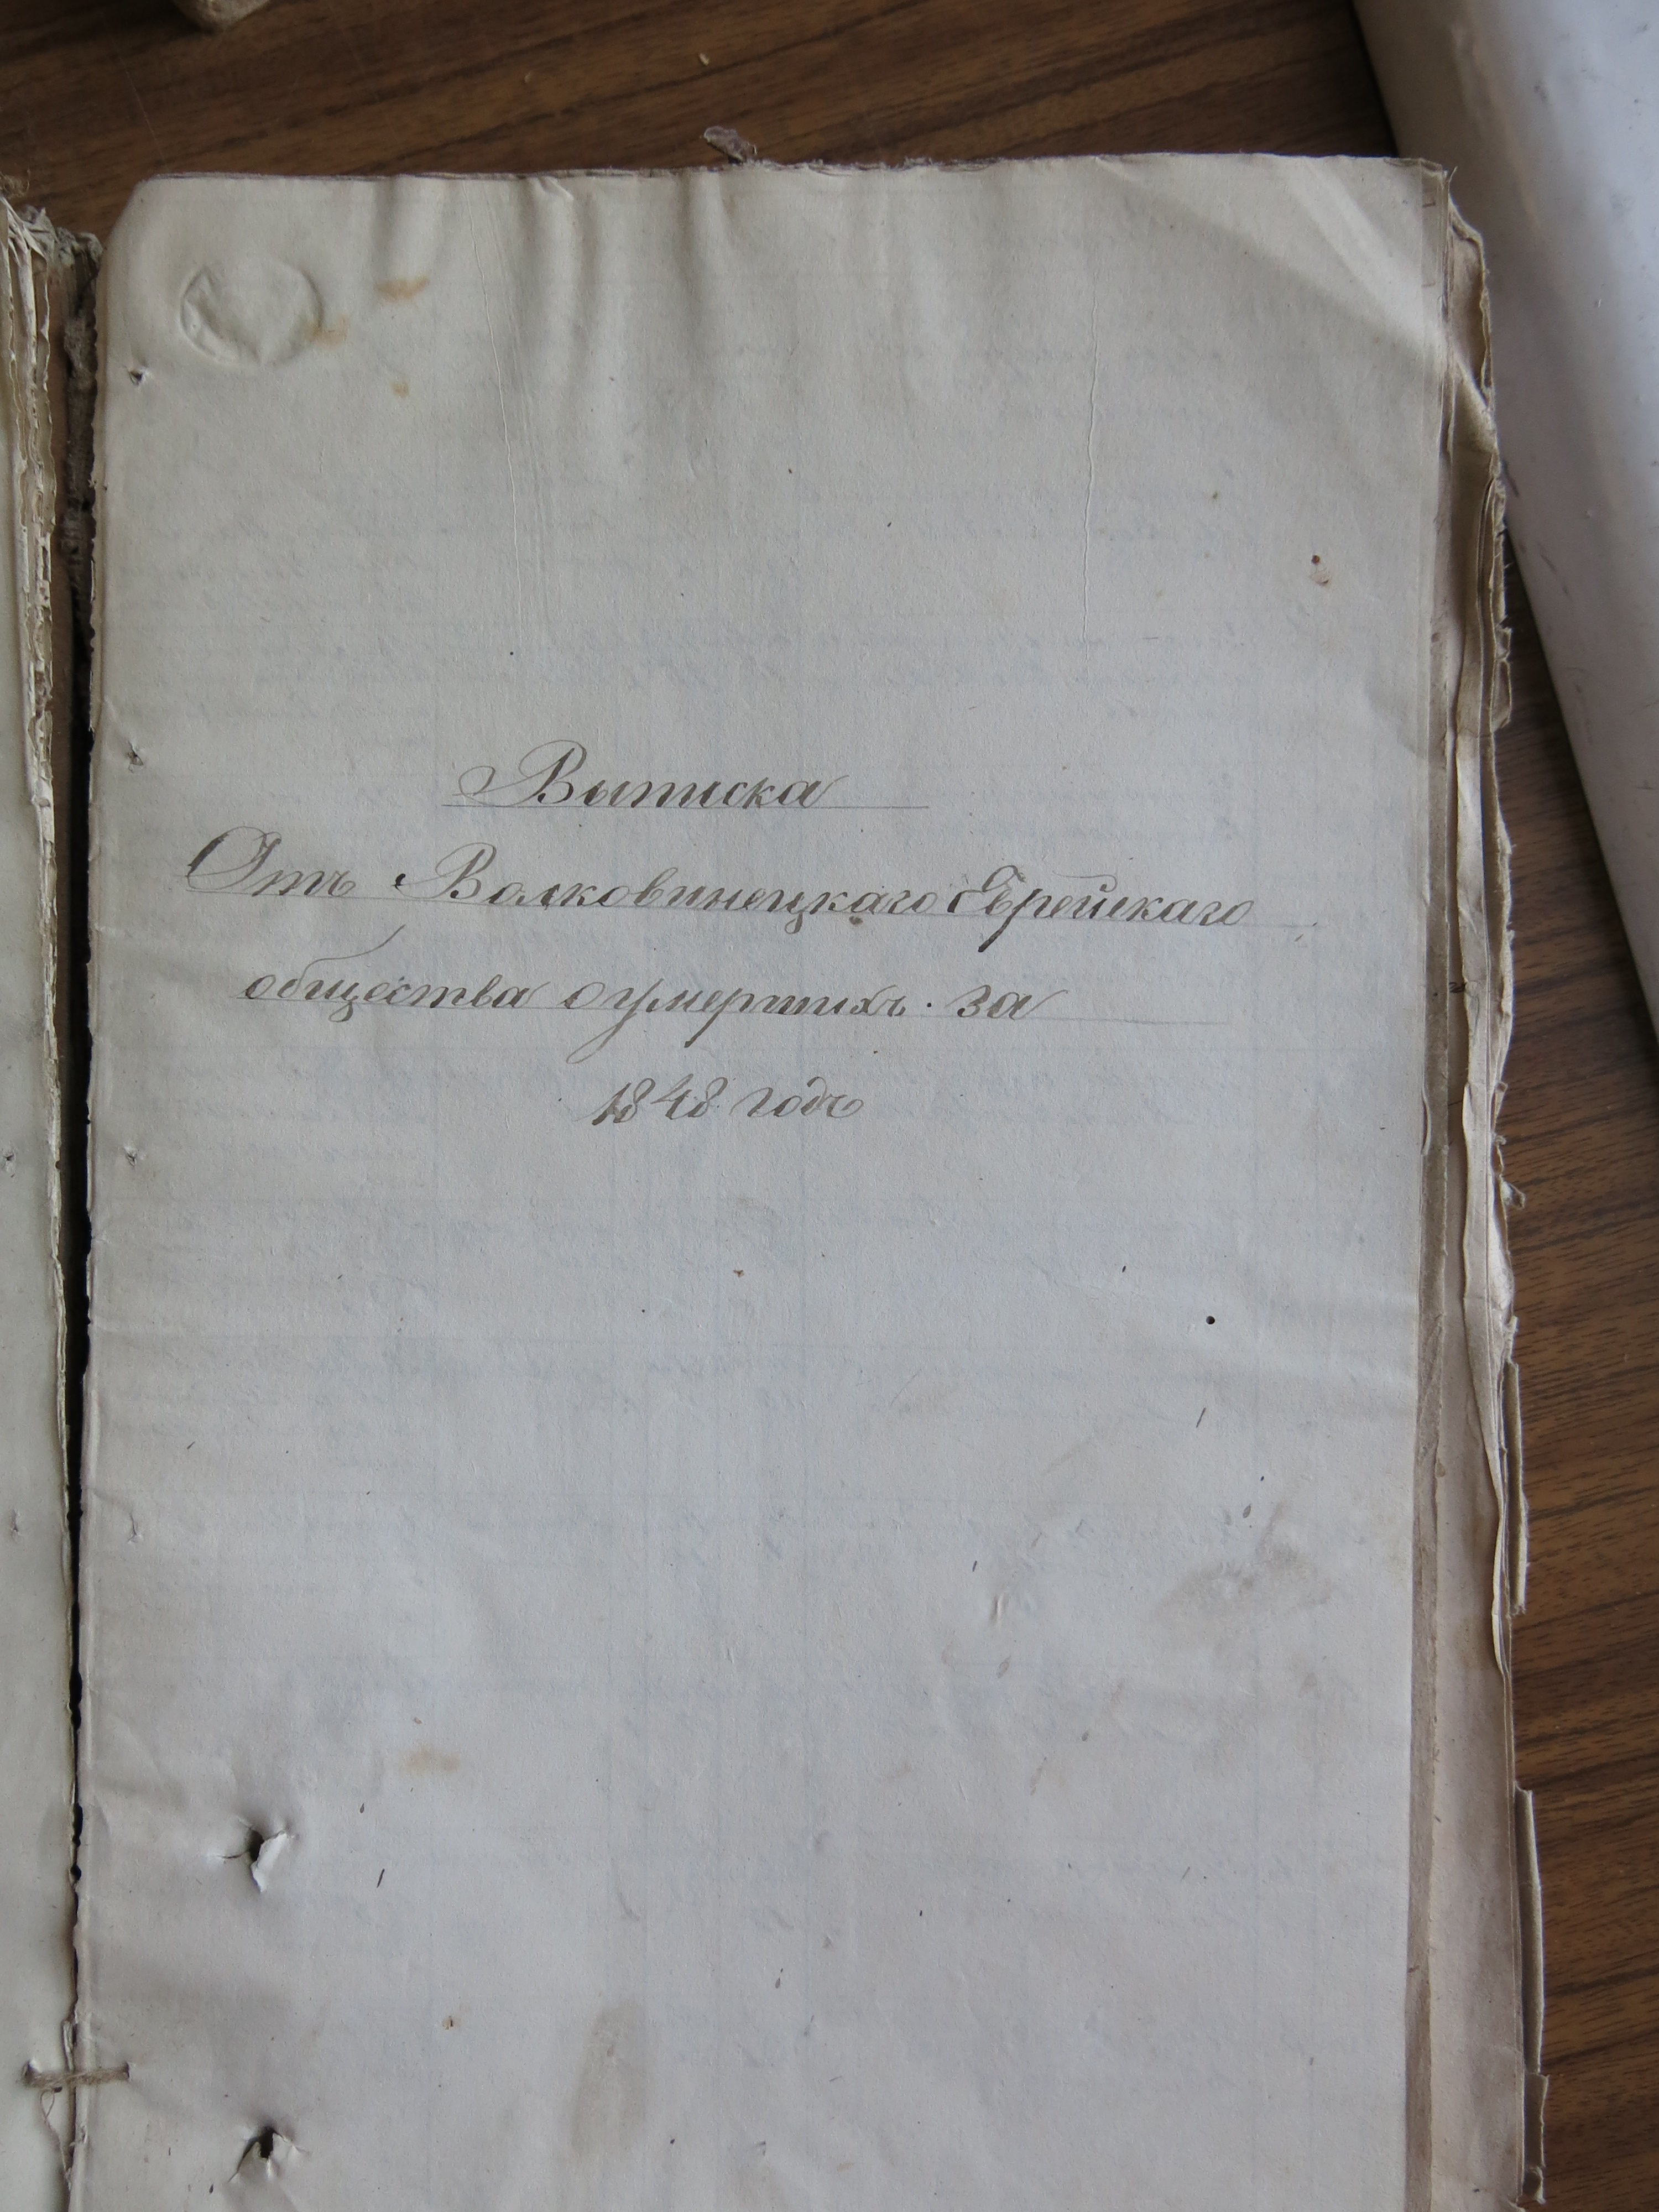 Выписка
Отъ Волковинецкаго Еврейскаго
общества о умершихъ за
1848 годъ